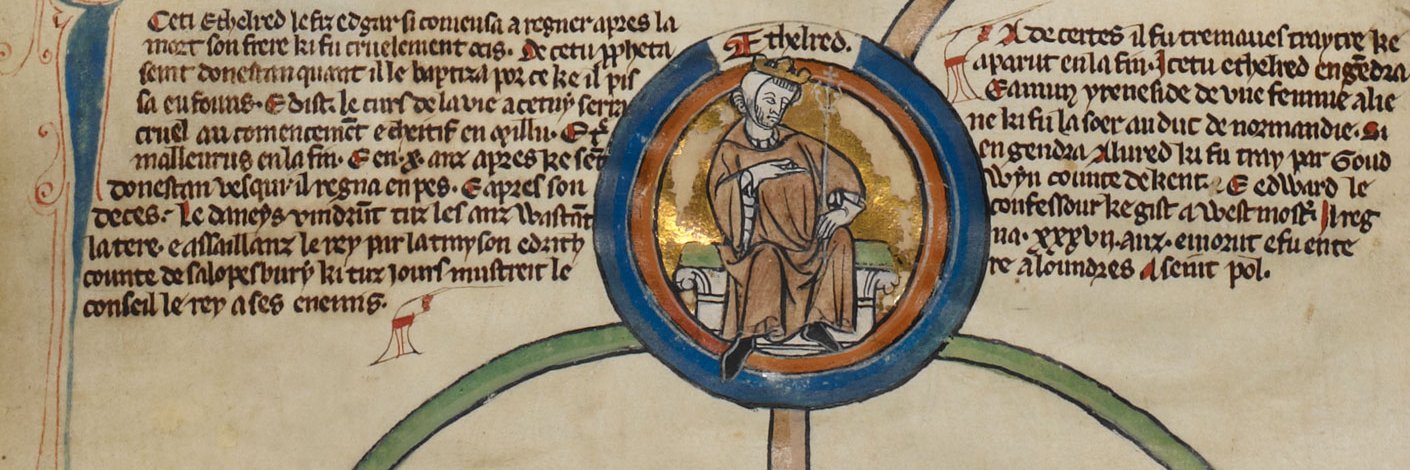 Ceti Ethelred le fiz edgar si comensa a regner apres la
mort son frere ki fu cruelement ocis. De cetu ppheta
seint donestan quant il le baptiza por ce ke il pis
sa en founs. E dist. le curs de la vie a cetuy serra
cruel au comencemēt e cheitif en
malleurus en la fin. E en .x. anz apres ke seīt
donestan vesqui. il regna en pes. E apres son
deces. Le daneys vindrūt tuz les anz Wastāt
la tere. e assaillanz le rey par la trayson edrith
counte de salopesbury ki tuz iours mustreit le
conseil le rey a ses enemis.
Ethelred.
A de certes il fu tremaues traytre ke
aparut en la fin. Icetu ethelred engēdra
Eamun yreneside de vne femme alie
ne ki fu la soer au duc de normandie. Si
engendra Alured ki fu tray par Goud
wyn counte de kent. E edward le
confessour ke gist a Westmost. Il reg
na. xxxvii. anz. e morut e fu ente
re a loundres A seint pol.